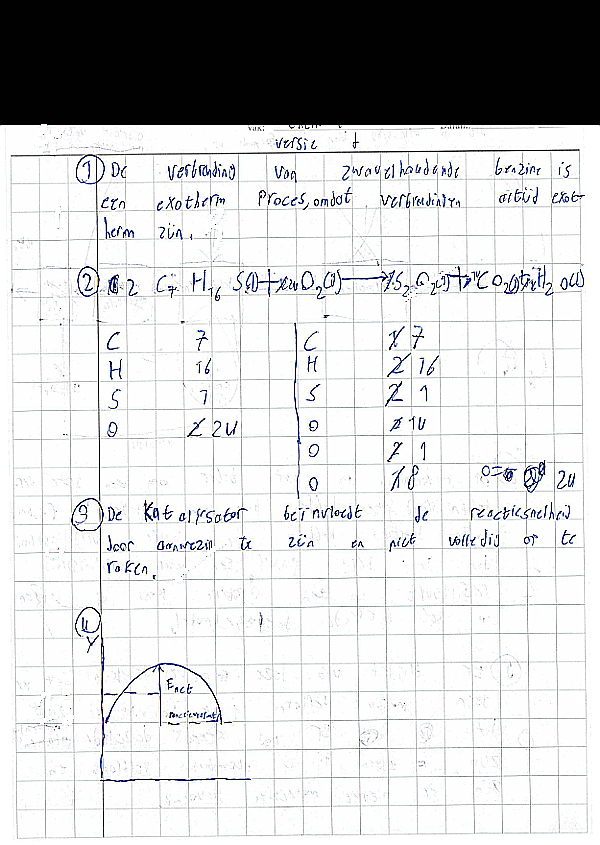 vak:
versie
① De verbranding van zwavelhoudende benzine is
een exotherm Proces, omdat verbrandingen altijd exot-
herm zijn.
② 2 C₇ H₁₆ S(l) + O₂(g) → S₂ O₂(g) + CO₂(g) + H₂ O(l)
C 7 C 7
H 16 H 16
S 1 S 1
O 24 O 14
O 1
O 8 O= 24
③ De Katalysator beïnvloedt de reactiesnelheid
door aanwezig te zijn en niet volledig op te
raken.
④
Y
Eact